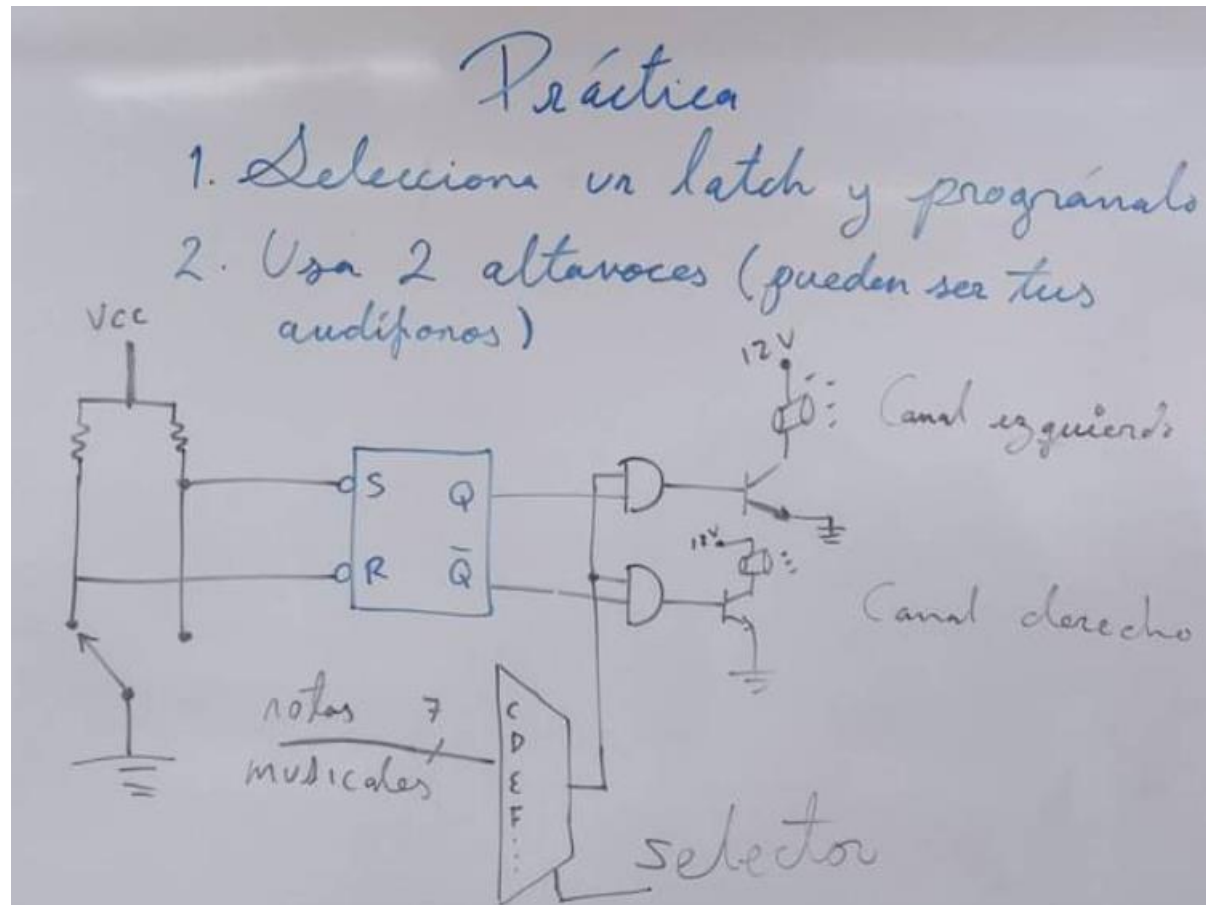 Práctica
1. Selecciona un latch y prográmalo
2. Usa 2 altavoces (pueden ser tus
audífonos)
Vcc
12V
Canal izquierdo
S Q
R Q̅
12V
Canal derecho
notas 7
musicales
C
D
E
F
...
selector